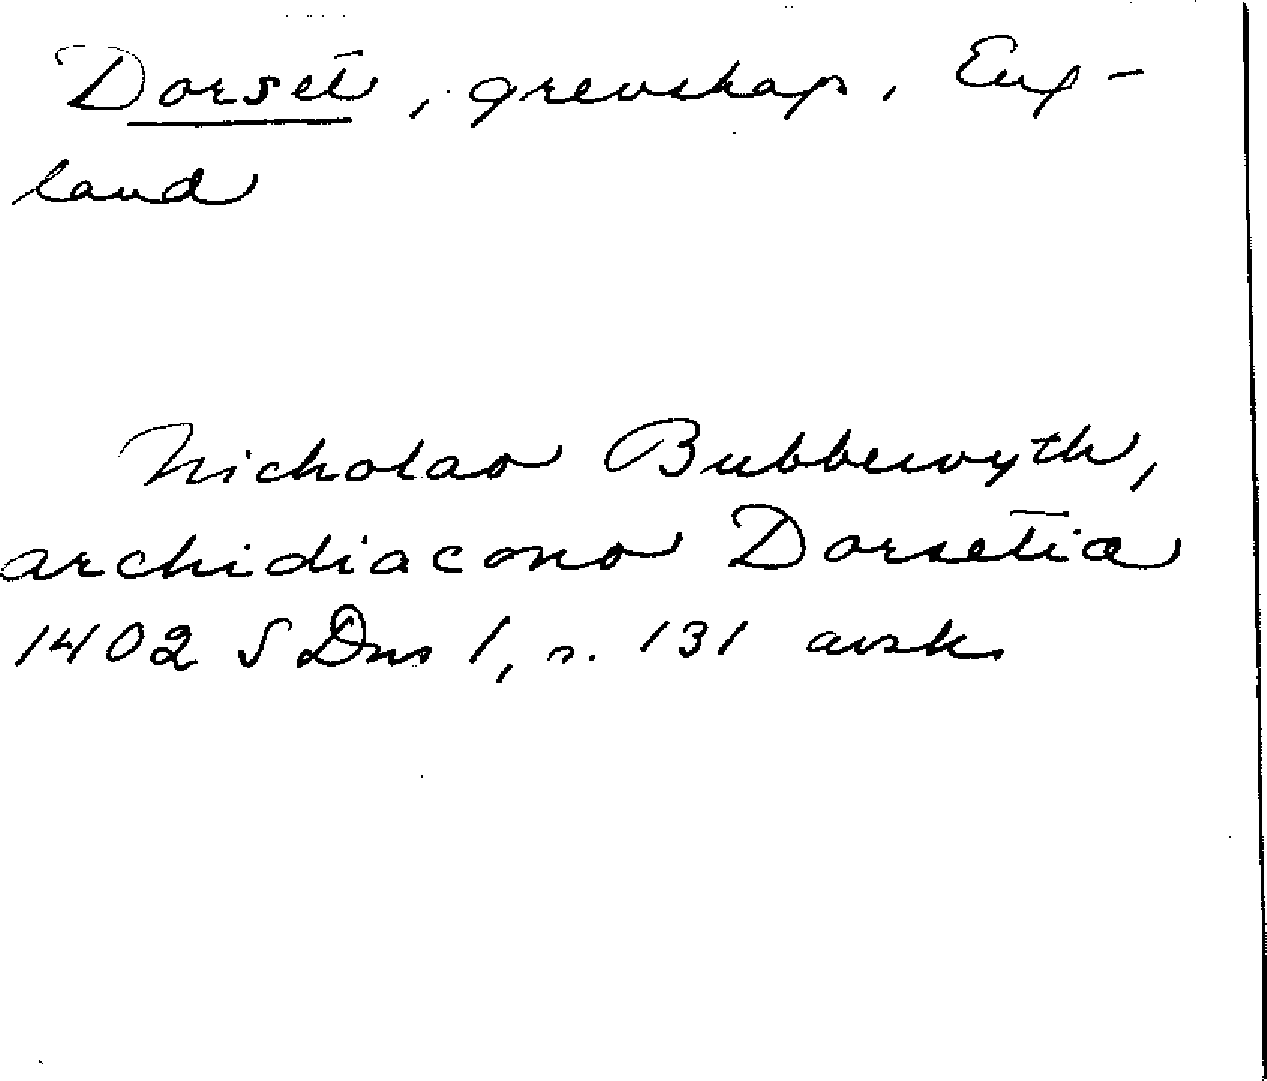 Dorset, grevskap, Eng-
land
Nicholao Bubbewyth,
archidiacono Dorsetia
1402 SDns 1, s. 131 avsk.